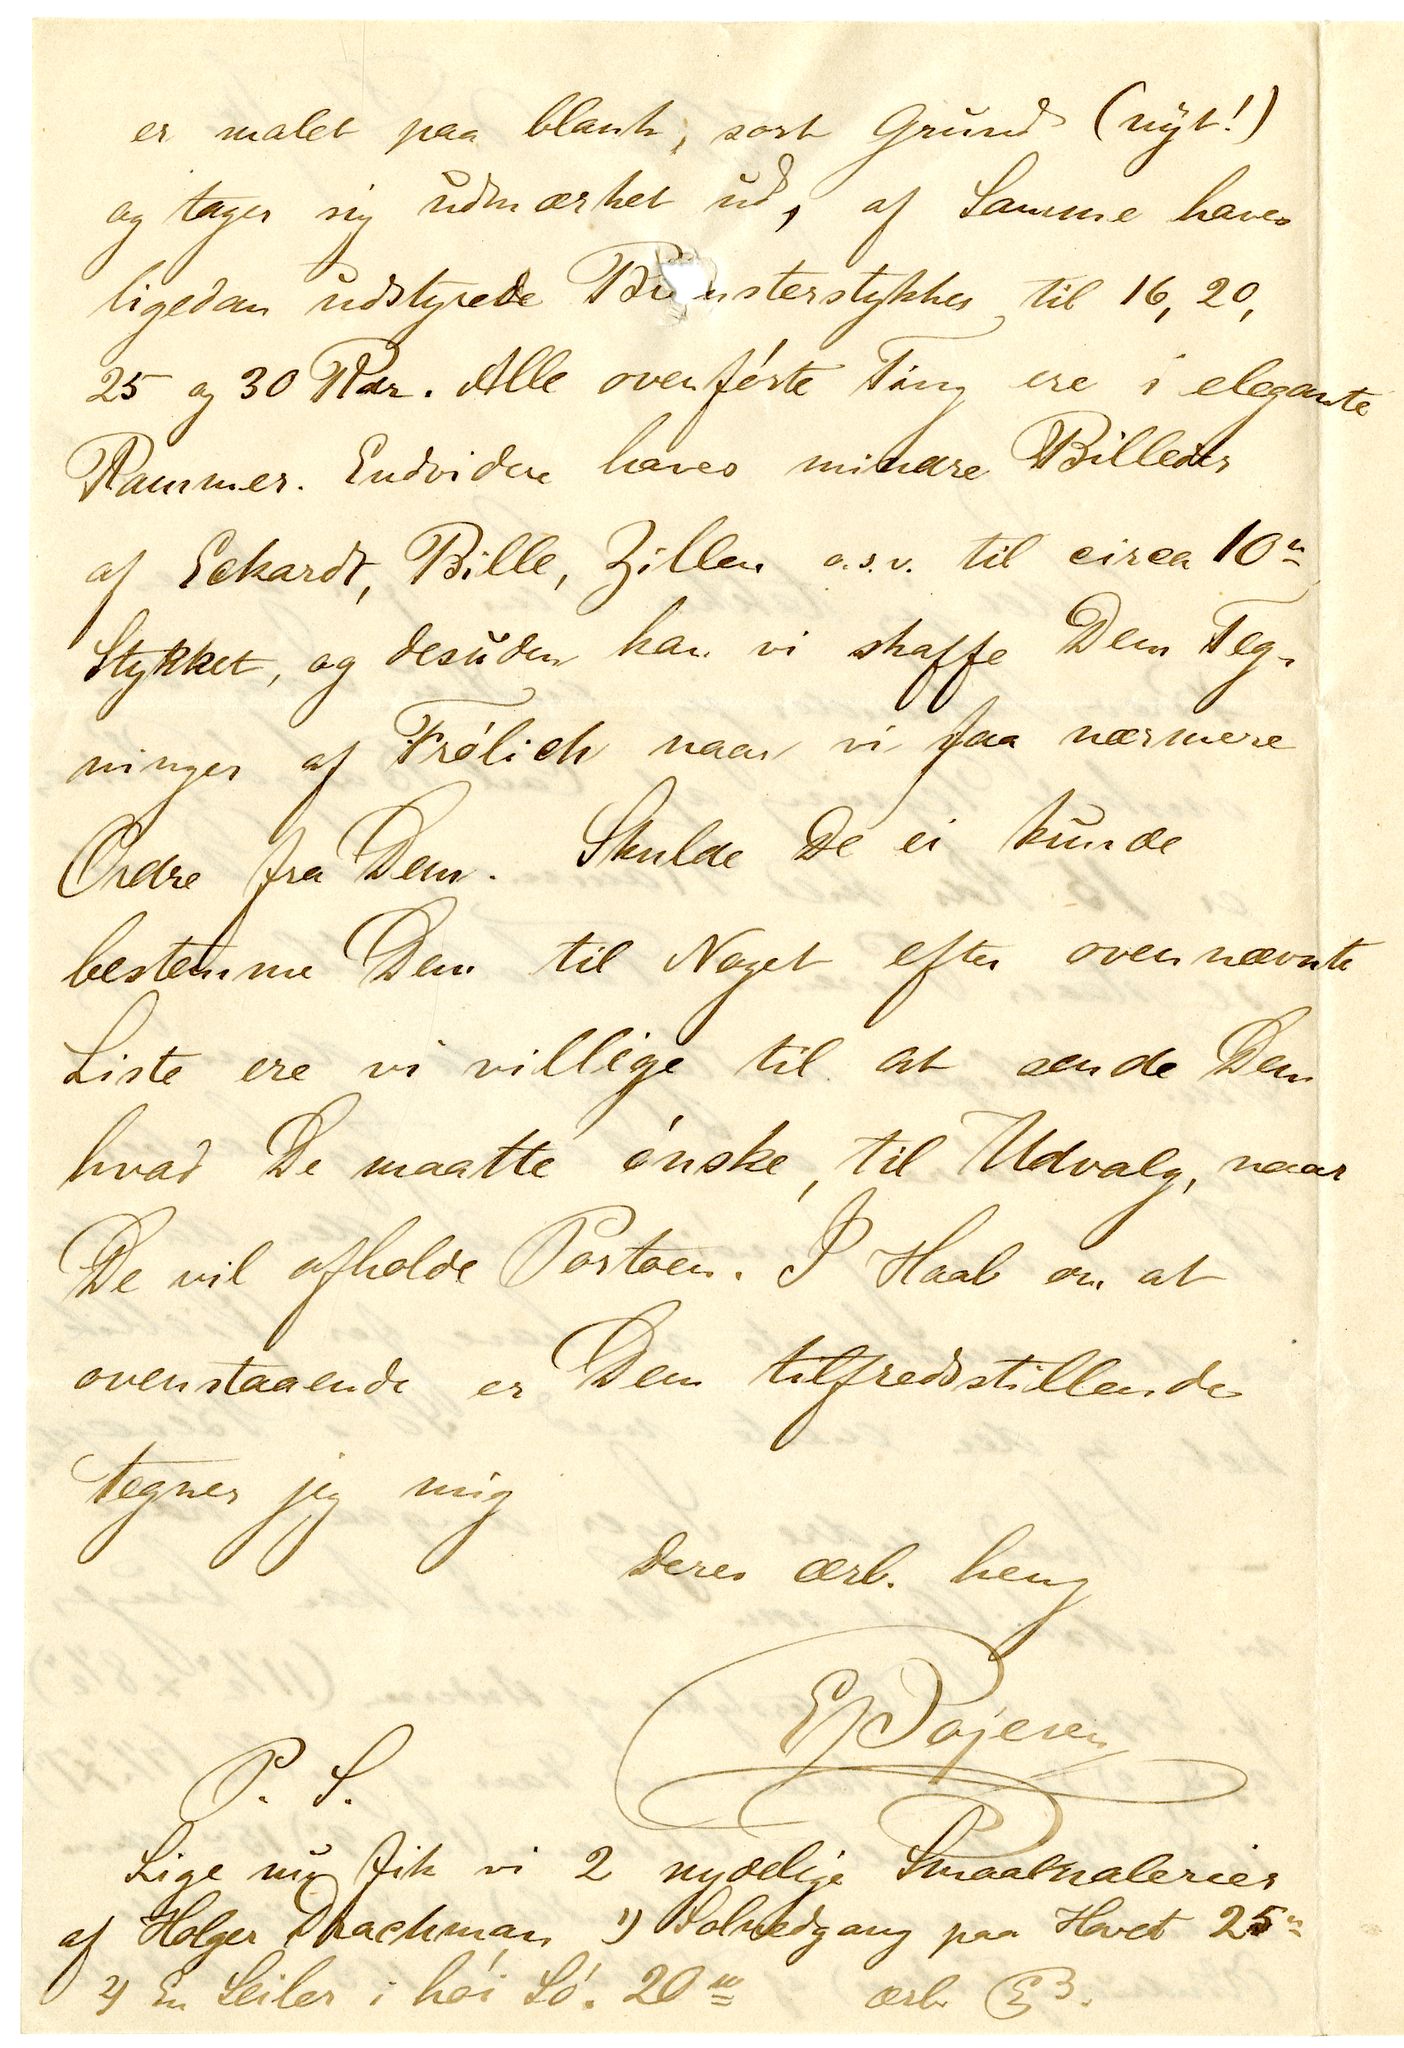 er malet paa blank, sort Grund (nyt!)
og tager sig udmærket ud, af Samme haves
ligedan udstyrede Blomsterstykker til 16, 20,
25 og 30 Rdr. Alle ovenførte Ting ere i elegante
Rammer. Endvidere haves mindre Billeder
af Eckardt, Bille, Zillen o.s.v. til circa 10 "
Stykket, og desuden kan vi skaffe Dem Teg-
ninger af Frölich naar vi faa nærmere
Ordre fra Dem. Skulde De ei kunde
bestemme Dem til Noget efter ovennævnte
Liste ere vi villige til at sende Dem
hvad De maatte ønske, til Udvalg, naar
De vil afholde Portoen. I Haab om at
ovenstaaende er Dem tilfredsstillende
tegner jeg mig
Deres ærb. heng
P. S.
Lige nu fik vi 2 nydelige Smaamalerier
af Holger Drachman 1) Solnedgang paa Havet 25 "
2) En Seiler i høi Sø. 20 "  ærb. EB.